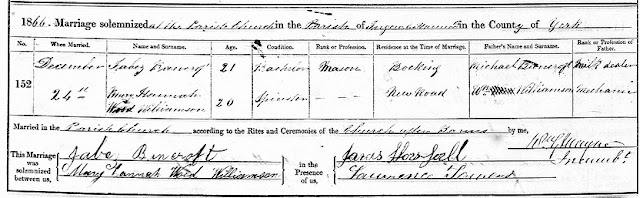 1866. Marriage solemnized at the Parish Church in the Parish of in the County of York
No. When Married. Name and Surname. Age. Condition. Rank or Profession. Residence at the Time of Marriage. Father's Name and Surname. Rank or Profession of Father.
152 December 24th
Jabez Bancroft 21 Bachelor Mason Bocking Michael Bancroft Milk dealer
Mary Hannah Wood Williamson 20 Spinster New Road Wm Williamson Mechanic
Married in the Parish Church according to the Rites and Ceremonies of the Church after Banns by me,
Incumbt.
This Marriage was solemnized between us,
Jabe Bincroft
Mary Hannah Wood Williamson
in the Presence of us,
Lawrence